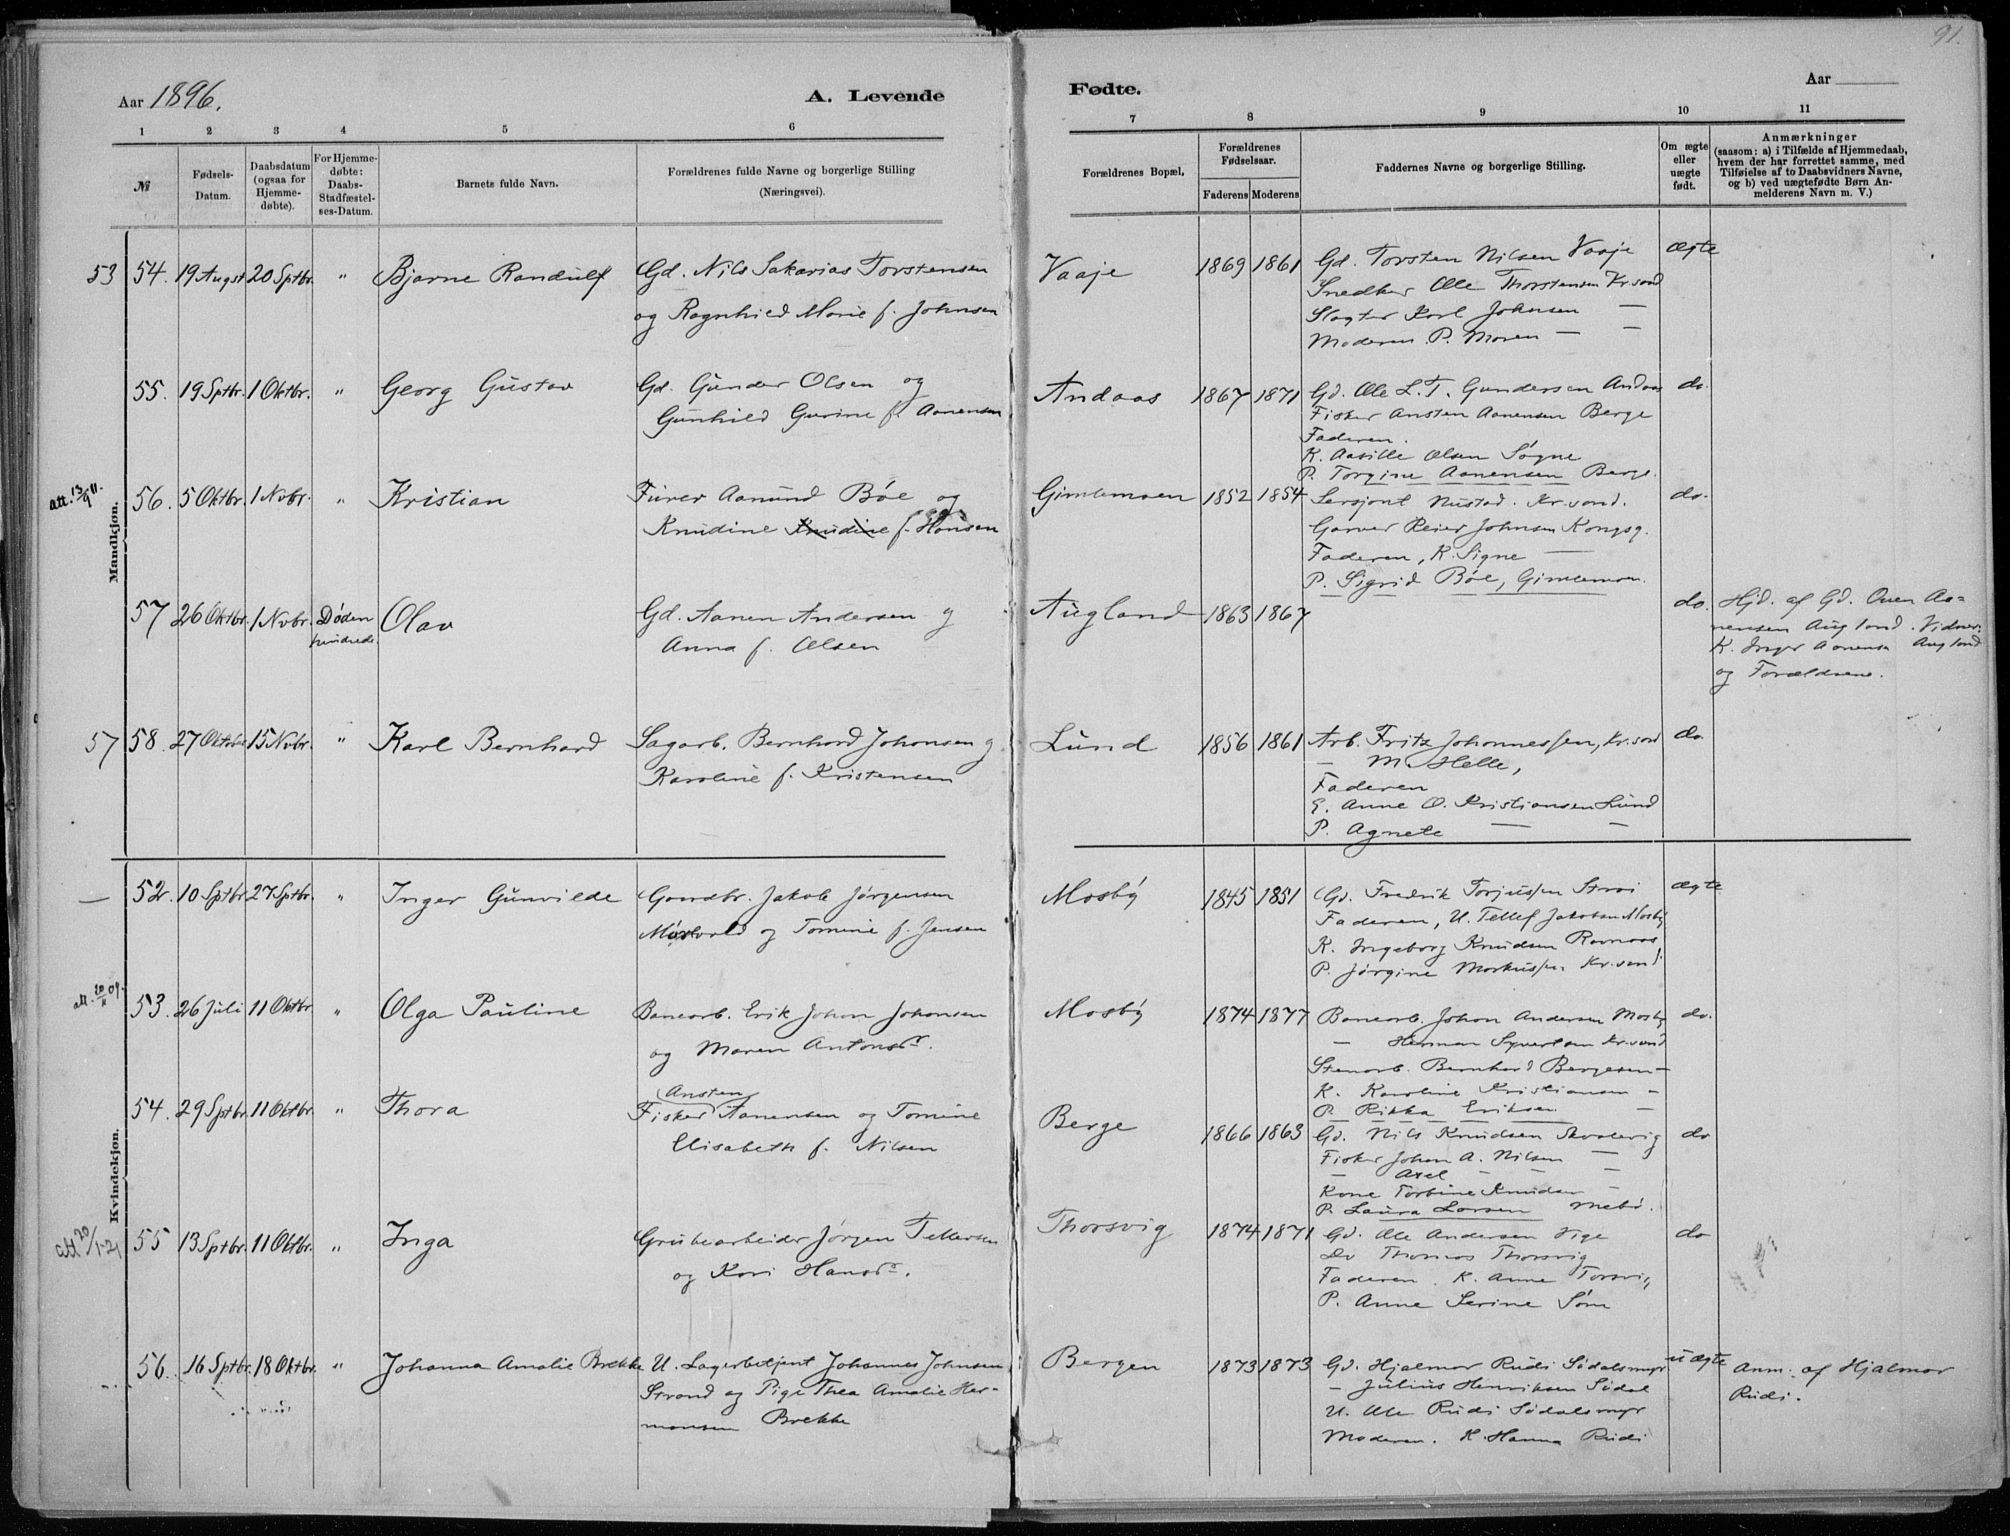 91.
Aar 1896.
A. Levende
Fødte.
Aar
1 2 3 4 5 6
7 8 9 10 11
№
Fødsels-
Datum.
Daabsdatum
(ogsaa for
Hjemme-
døbte).
For Hjemme-
døbte:
Daabs-
Stadfæstel-
ses-Datum.
Barnets fulde Navn.
Forældrenes fulde Navne og borgerlige Stilling
(Næringsvei).
Forældrenes Bopæl,
Forældrenes
Fødselsaar.
Faderens Moderens
Faddernes Navne og borgerlige Stilling.
Om ægte
eller
uægte
født.
Anmærkninger
(saasom: a) i Tilfælde af Hjemmedaab,
hvem der har forrettet samme, med
Tilføielse af to Daabsvidners Navne,
og b) ved uægtefødte Børn An-
melderens Navn m. V.)
Mandkjøn.
53 54. 19 Augst 20 Sptbr. " Bjarne Randulf
Gd. Nils Sakarias Torstensen
og Ragnhild Marie f. Johnsen
Vaaje 1869 1861
Gd. Torsten Nilsen Vaaje
Snedker Ole Thorstensen Kr.sand
Slagter Karl Johnsen —
Moderen. P. Maren — —
ægte
55. 19 Sptbr. 1 Oktbr. " Georg Gustav
Gd. Gunder Olsen og
Gunhild Gurine f. Aanensen
Andaas 1867 1871
Gd. Ole L. T. Gundersen Andaas
Fisker Ansten Aanensen Berge
Faderen.
K. Aasille Olsen Søgne
P. Torgine Aanensen Berge.
do.
att. 13/9 11. 56. 5 Oktbr. 1 Nvbr. " Kristian
Furer Aanund Bøe og
Knudine Knudine f. Hansen
Gimlemoen 1852 1854
Sersjant Nustad. Kr.sand.
Garver Reier Johnsen Kongsg.
Faderen, K. Signe —
P. Sigrid Bøe, Gimlemoen.
do.
57 26 Oktbr. 1 Nvbr. Døden
hindrede. Olav
Gd. Aanen Andersen og
Anna f. Olsen
Augland 1863 1867
do.
Hjd. af Gd. Oven Aa-
nensen Augland. Vidner:
K. Inger Aanensen Augland
og Forældrene.
57 58. 27 Oktbr 15 Nvbr. " Karl Bernhard
Sagarb. Bernhard Johansen og
Karoline f. Kristensen
Lund 1856 1861
Arb. Fritz Johannessen, Kr.sand
— M. Helle,
Faderen
E. Anne O. Kristiansen Lund
P. Agnete — —
do.
Kvindekjøn.
— 52. 10 Sptbr. 27 Sptbr. " Inger Gunvilde
Gaardbr. Jakob Jørgensen
og Tomine f. Jensen
Mosby 1845 1851
Gd. Fredrik Torjussen Strai
Faderen, U. Tellef Jakobsen Mosby
K. Ingeborg Knudsen Ravnaas
P. Jørgine Markussen Kr.sand.
ægte
att. 20/11 09. 53. 26 Juli 11 Oktbr. " Olga Pauline
Banearb. Erik Johan Johansen
og Maren Antonsdr.
Mosby 1874 1877
Banearb. Johan Andersen Mosby
— Herman Syvertsen Kr.sand
Stenarb. Bernhard Bergesen —
K. Karoline Kristiansen —
P. Rikka Eriksen —
do.
54. 29 Sptbr. 11 Oktbr. " Thora
Ansten
Fisker Aanensen og Tomine
Elisabeth f. Nilsen
Berge 1866 1863
Gd. Nils Knudsen Skaalevig
Fisker Johan A. Nilsen —
— Axel — — —
Kone Torbine Knudsen —
P. Laura Larsen
do
att 20/1-21 55 13 Sptbr. 11 Oktbr. " Inga
Grubearbeider Jørgen Tellefsen
og Kari Hansdr.
Thorsvig 1874 1871
Gd. Ole Andersen Vige
Do Thomas Thorsvig
Faderen. K. Anne Torsvig
P. Anne Serine Søm
do
56. 16 Sptbr. 18 Oktbr. " Johanna Amalie Brekke
U. Lagerbetjent Johannes Johnsen
Strand og Pige Thea Amalie Her-
mansen Brekke
Bergen 1873 1873
Gd. Hjalmar Rudi Sødalsmyr
— Julius Henriksen Sødal
U. Ole Rudi Sødalsmyr
Moderen. K. Hanna Rudi
uægte
Anm. af Hjalmar
Rudi.